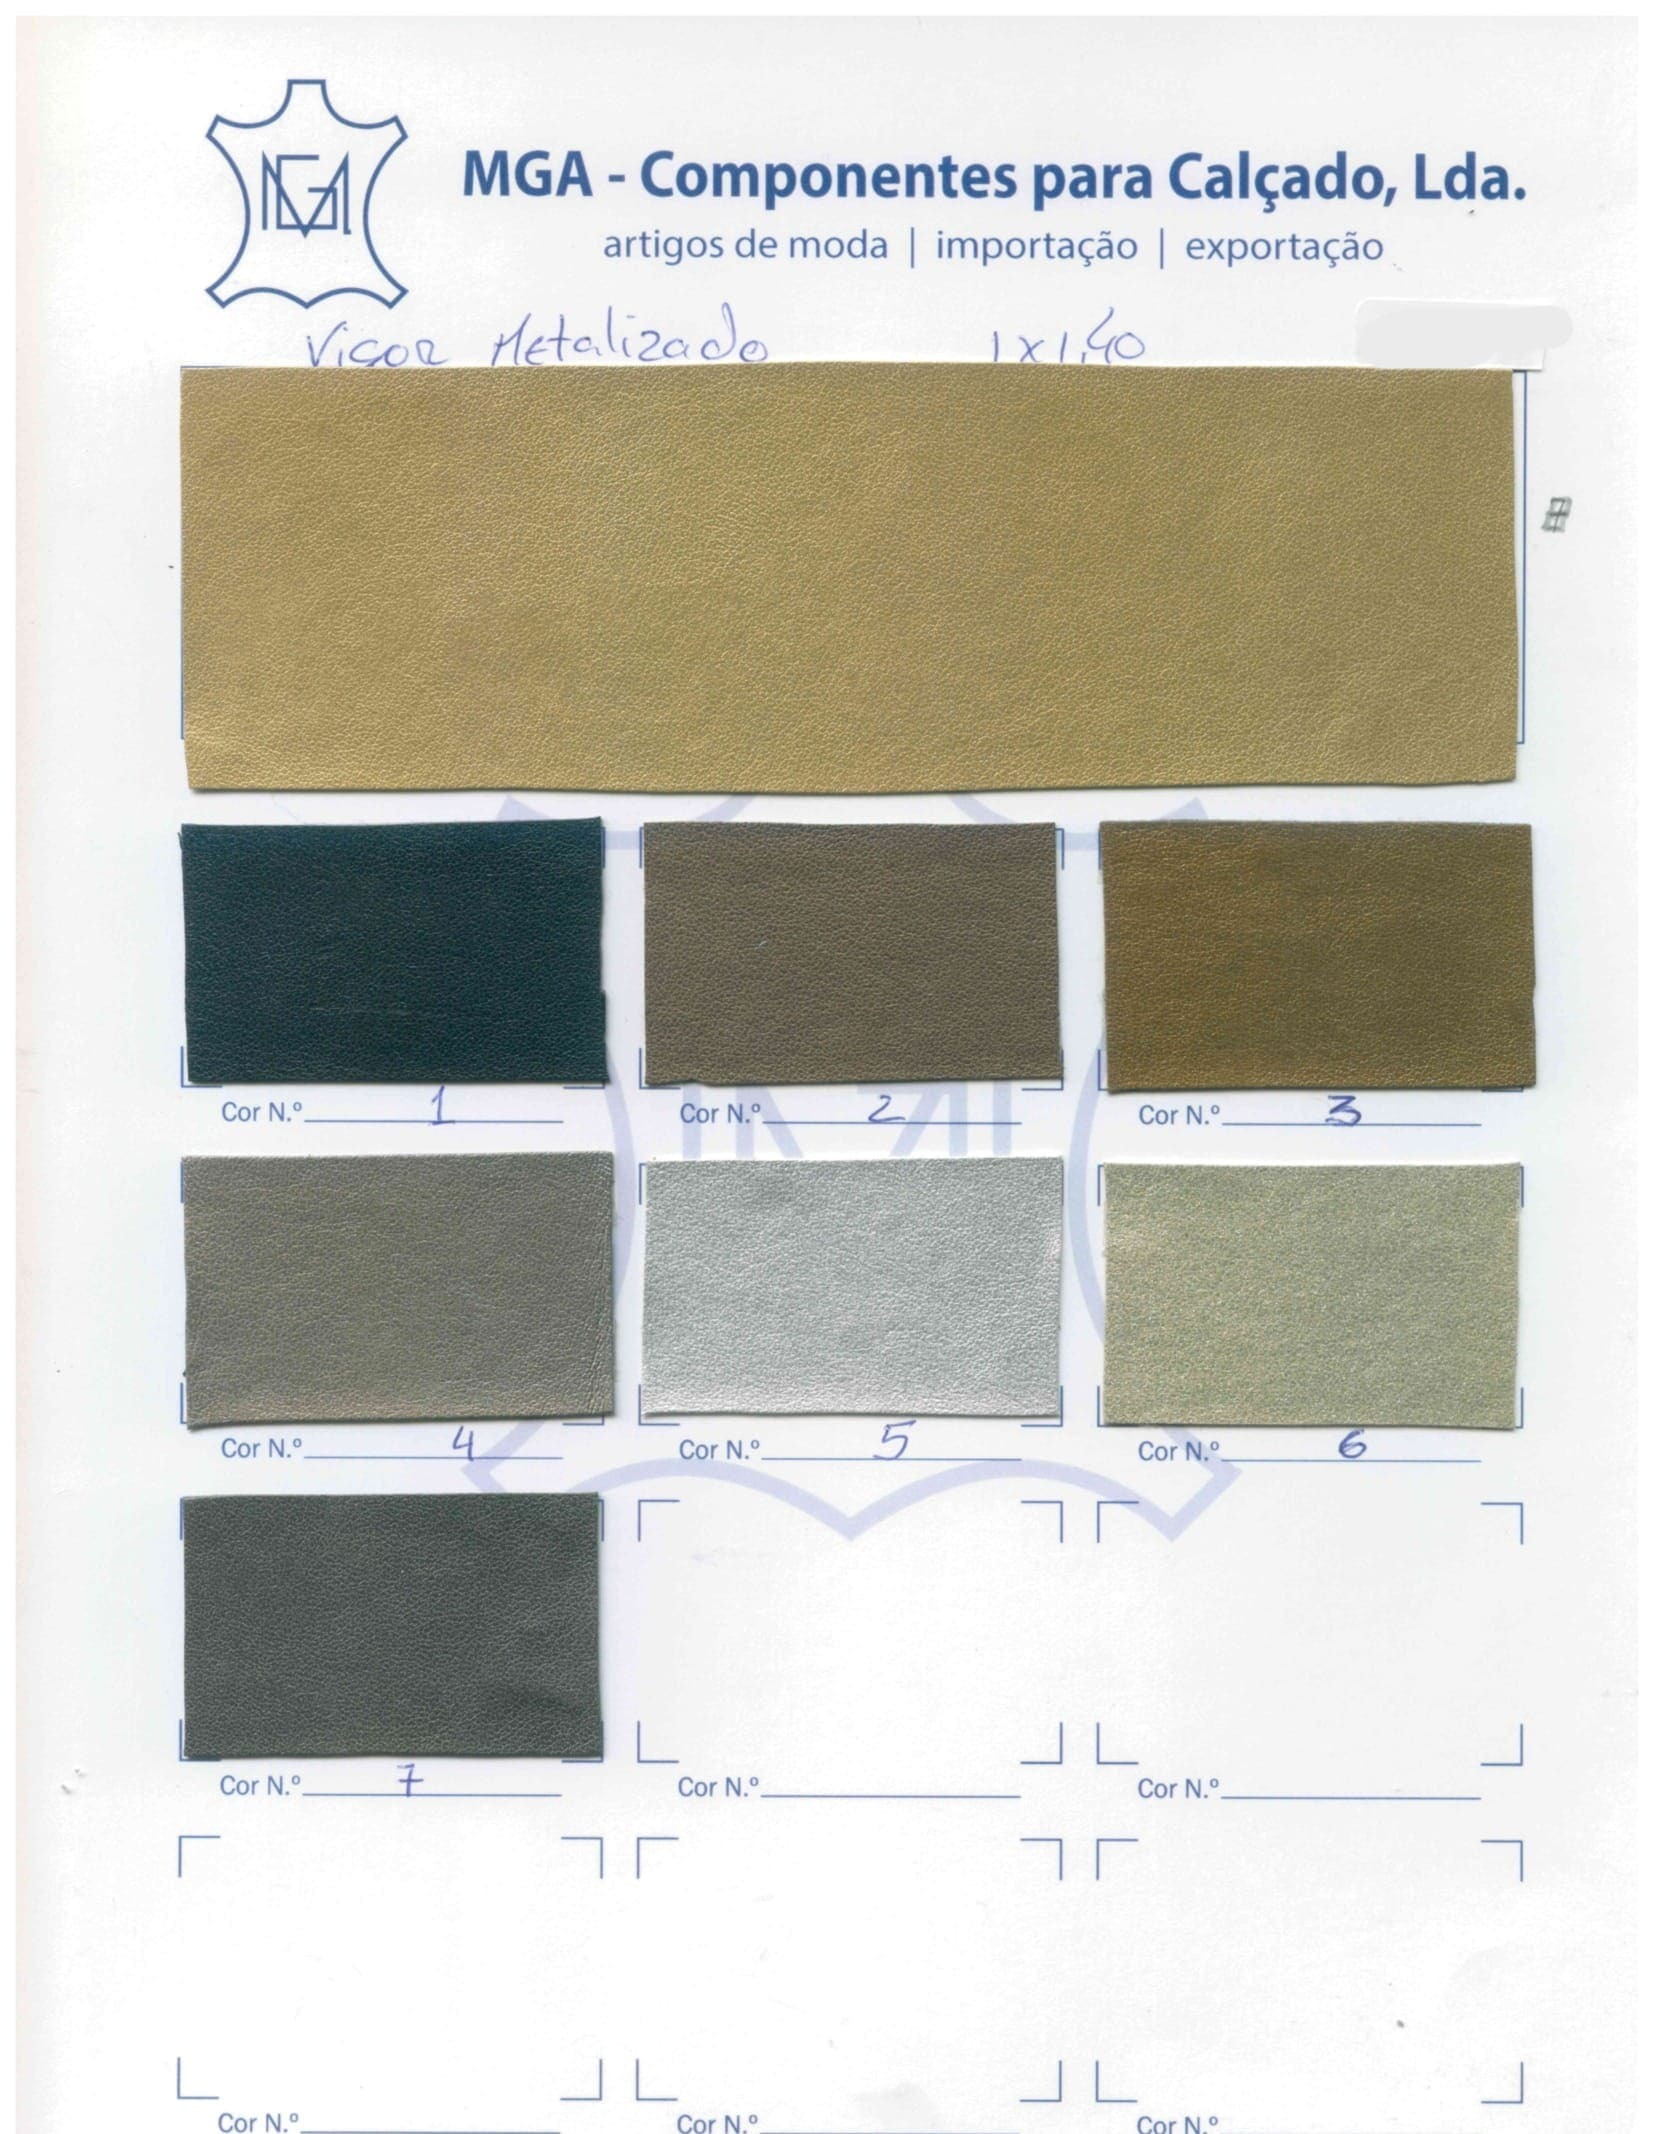 MGA
MGA - Componentes para Calçado, Lda.
artigos de moda | importação | exportação
Vigor Metalizado 1x1,40
Cor N.º 1 Cor N.º 2 Cor N.º 3
Cor N.º 4 Cor N.º 5 Cor N.º 6
Cor N.º 7 Cor N.º Cor N.º
Cor N.º Cor N.º Cor N.º